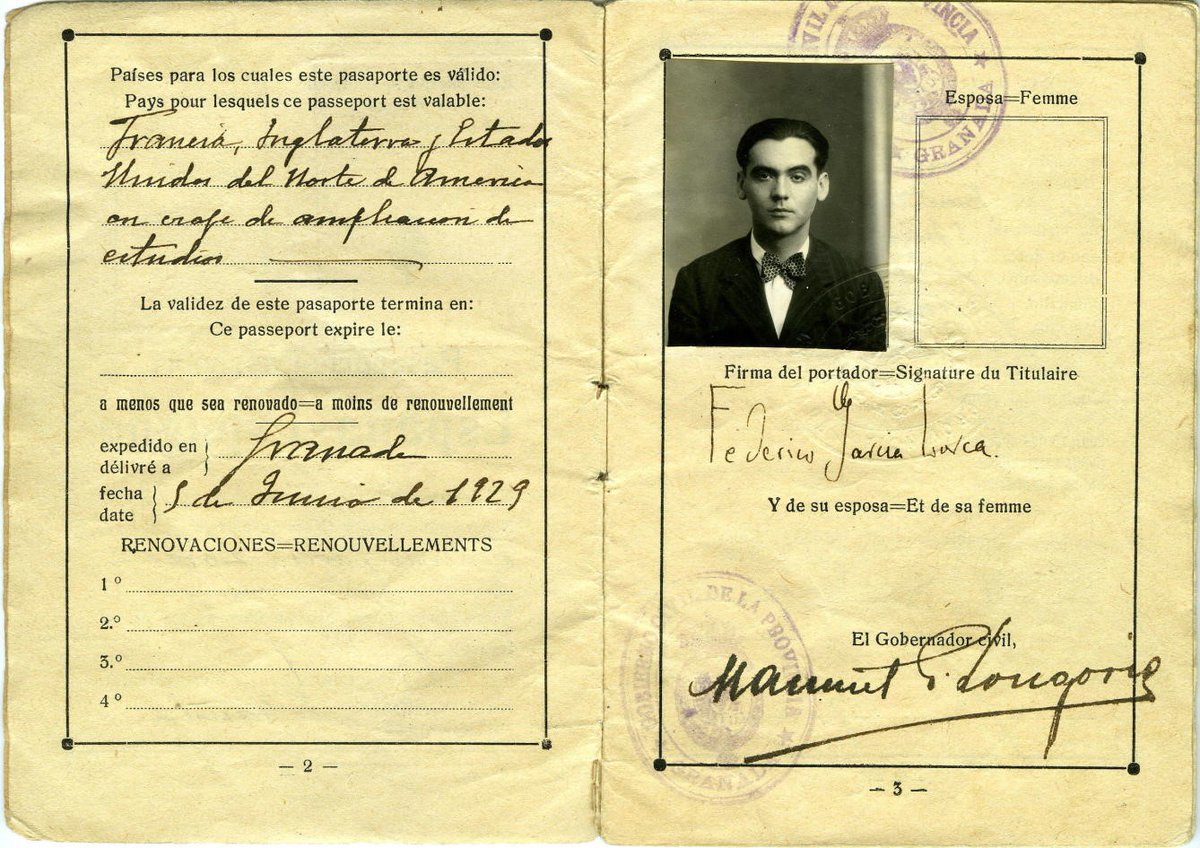 Países para los cuales este pasaporte es válido:
Pays pour lesquels ce passeport est valable:
Francia, Inglaterra y Estados
Unidos del Norte de America
en viaje de ampliacion de
estudios
La validez de este pasaporte termina en:
Ce passeport expire le:
a menos que sea renovado=a moins de renouvellement
expedido en
délivré a
Granada
fecha
date
5 de Junio de 1929
RENOVACIONES=RENOUVELLEMENTS
1º
2.º
3.º
4º
— 2 —
VINCIA ★
★ GRANADA
Esposa=Femme
Firma del portador=Signature du Titulaire
Federico García Lorca.
Y de su esposa=Et de sa femme
GOBIERNO CIVIL DE LA PROVINCIA ★
GRANADA
El Gobernador civil,
Manuel Longoria
— 3 —